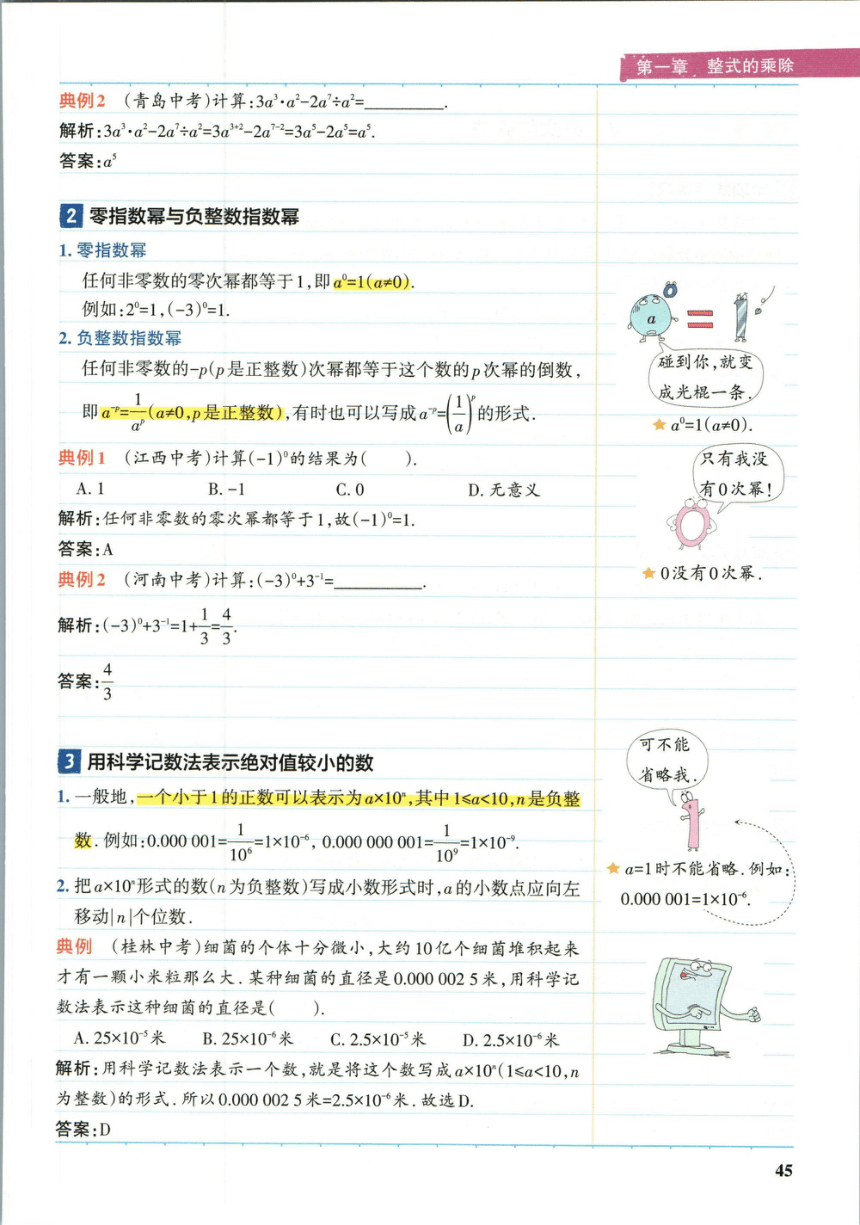 第一章 整式的乘除
典例2 (青岛中考)计算:3a³·a²-2a⁷÷a²=________.
解析:3a³·a²-2a⁷÷a²=3a³⁺²-2a⁷⁻²=3a⁵-2a⁵=a⁵.
答案:a⁵
2 零指数幂与负整数指数幂
1. 零指数幂
任何非零数的零次幂都等于1,即a⁰=1(a≠0).
例如:2⁰=1,(-3)⁰=1.
2. 负整数指数幂
任何非零数的-p(p是正整数)次幂都等于这个数的p次幂的倒数,
即a⁻ᵖ=1/aᵖ(a≠0,p是正整数),有时也可以写成a⁻ᵖ=(1/a)ᵖ的形式.
典例1 (江西中考)计算(-1)⁰的结果为( ).
A. 1 B. -1 C. 0 D. 无意义
解析:任何非零数的零次幂都等于1,故(-1)⁰=1.
答案:A
典例2 (河南中考)计算:(-3)⁰+3⁻¹=________.
解析:(-3)⁰+3⁻¹=1+1/3=4/3.
答案:4/3
3 用科学记数法表示绝对值较小的数
1. 一般地,一个小于1的正数可以表示为a×10ⁿ,其中1≤a<10,n是负整
数.例如:0.000 001=1/10⁶=1×10⁻⁶, 0.000 000 001=1/10⁹=1×10⁻⁹.
2. 把a×10ⁿ形式的数(n为负整数)写成小数形式时,a的小数点应向左
移动|n|个位数.
典例 (桂林中考)细菌的个体十分微小,大约10亿个细菌堆积起来
才有一颗小米粒那么大.某种细菌的直径是0.000 002 5米,用科学记
数法表示这种细菌的直径是( ).
A. 25×10⁻⁵米 B. 25×10⁻⁶米 C. 2.5×10⁻⁵米 D. 2.5×10⁻⁶米
解析:用科学记数法表示一个数,就是将这个数写成a×10ⁿ(1≤a<10,n
为整数)的形式.所以0.000 002 5米=2.5×10⁻⁶米.故选D.
答案:D
0
a = 1
碰到你,就变
成光棍一条.
★ a⁰=1(a≠0).
只有我没
有0次幂!
★ 0没有0次幂.
可不能
省略我.
★ a=1时不能省略.例如:
0.000 001=1×10⁻⁶.
45